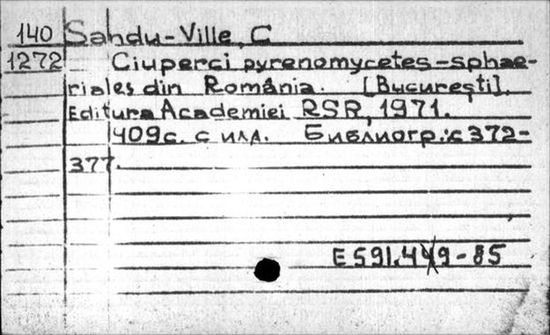 140 Sandu-Ville, C
1272 Ciuperci pyrenomycetes-sphae-
riales din România. [Bucureşti],
Editura Academiei RSR, 1971.
409с. с илл. Библиогр.: с 372-
377.
E591.449-85